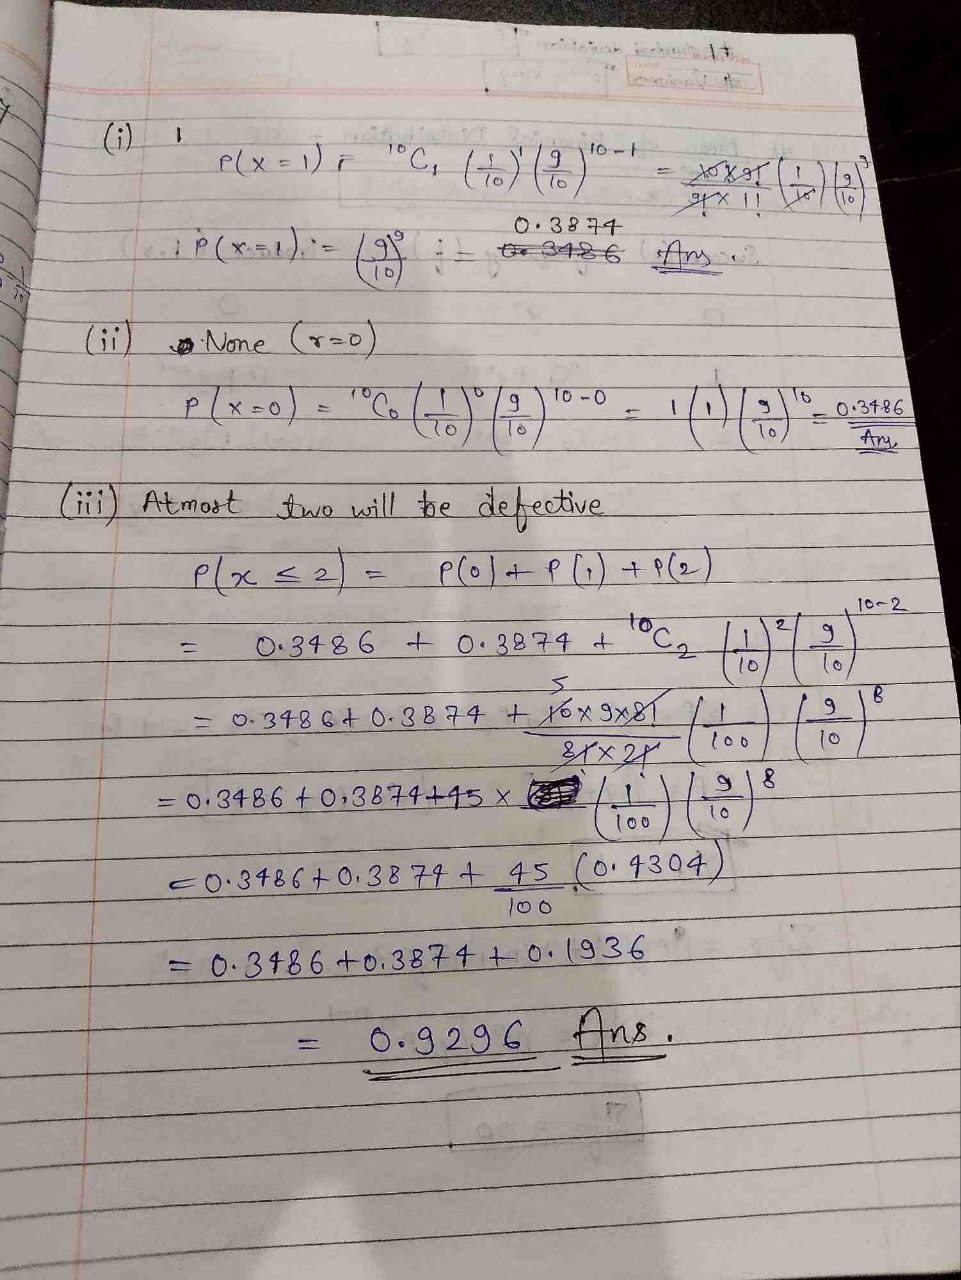 (i) 1
P(x = 1) = ¹⁰C₁ (1/10)¹ (9/10)¹⁰⁻¹ = 10×9!/9!×1! (1/10) (9/10)⁹
P(x=1) = (9/10)⁹ = 0.3874 Ans.
(ii) None (r=0)
P(x=0) = ¹⁰C₀ (1/10)⁰ (9/10)¹⁰⁻⁰ = 1 (1) (9/10)¹⁰ = 0.3486 Ans
(iii) Atmost two will be defective
P(x ≤ 2) = P(0) + P(1) + P(2)
= 0.3486 + 0.3874 + ¹⁰C₂ (1/10)² (9/10)¹⁰⁻²
= 0.3486 + 0.3874 + 5 10×9×8!/8!×2! (1/100) (9/10)⁸
= 0.3486 + 0.3874 + 45 × (1/100) (9/10)⁸
= 0.3486 + 0.3874 + 45/100 (0.4304)
= 0.3486 + 0.3874 + 0.1936
= 0.9296 Ans.